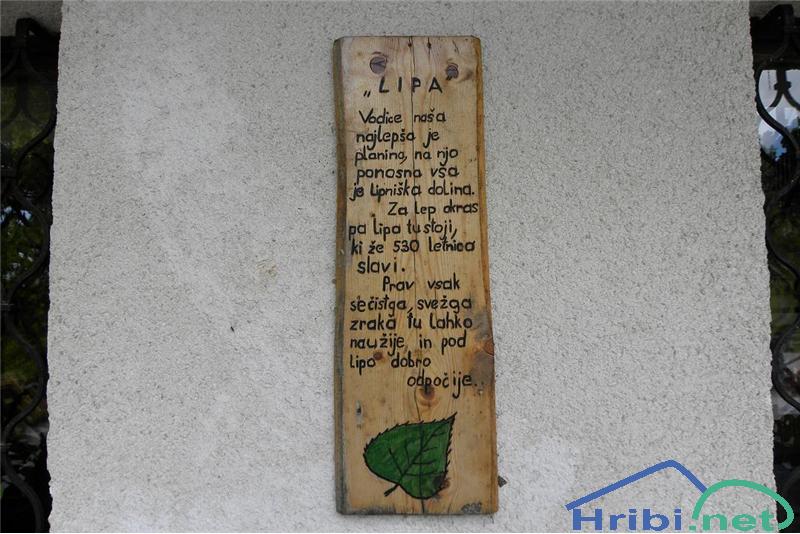 „LIPA"
Vodice naša
najlepša je
planina, na njo
ponosna vsa
je lipniška dolina.
Za lep okras
pa lipa tu stoji,
ki že 530 letnico
slavi.
Prav vsak
se čistga, svežga
zraka tu lahko
naužije in pod
lipo dobro
odpočije.
Hribi.net